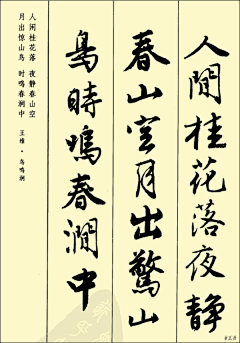 人間桂花落夜靜
春山空月出驚山
鳥時鳴春澗中
人闲桂花落 夜静春山空
月出惊山鸟 时鸣春涧中
王维·鸟鸣涧